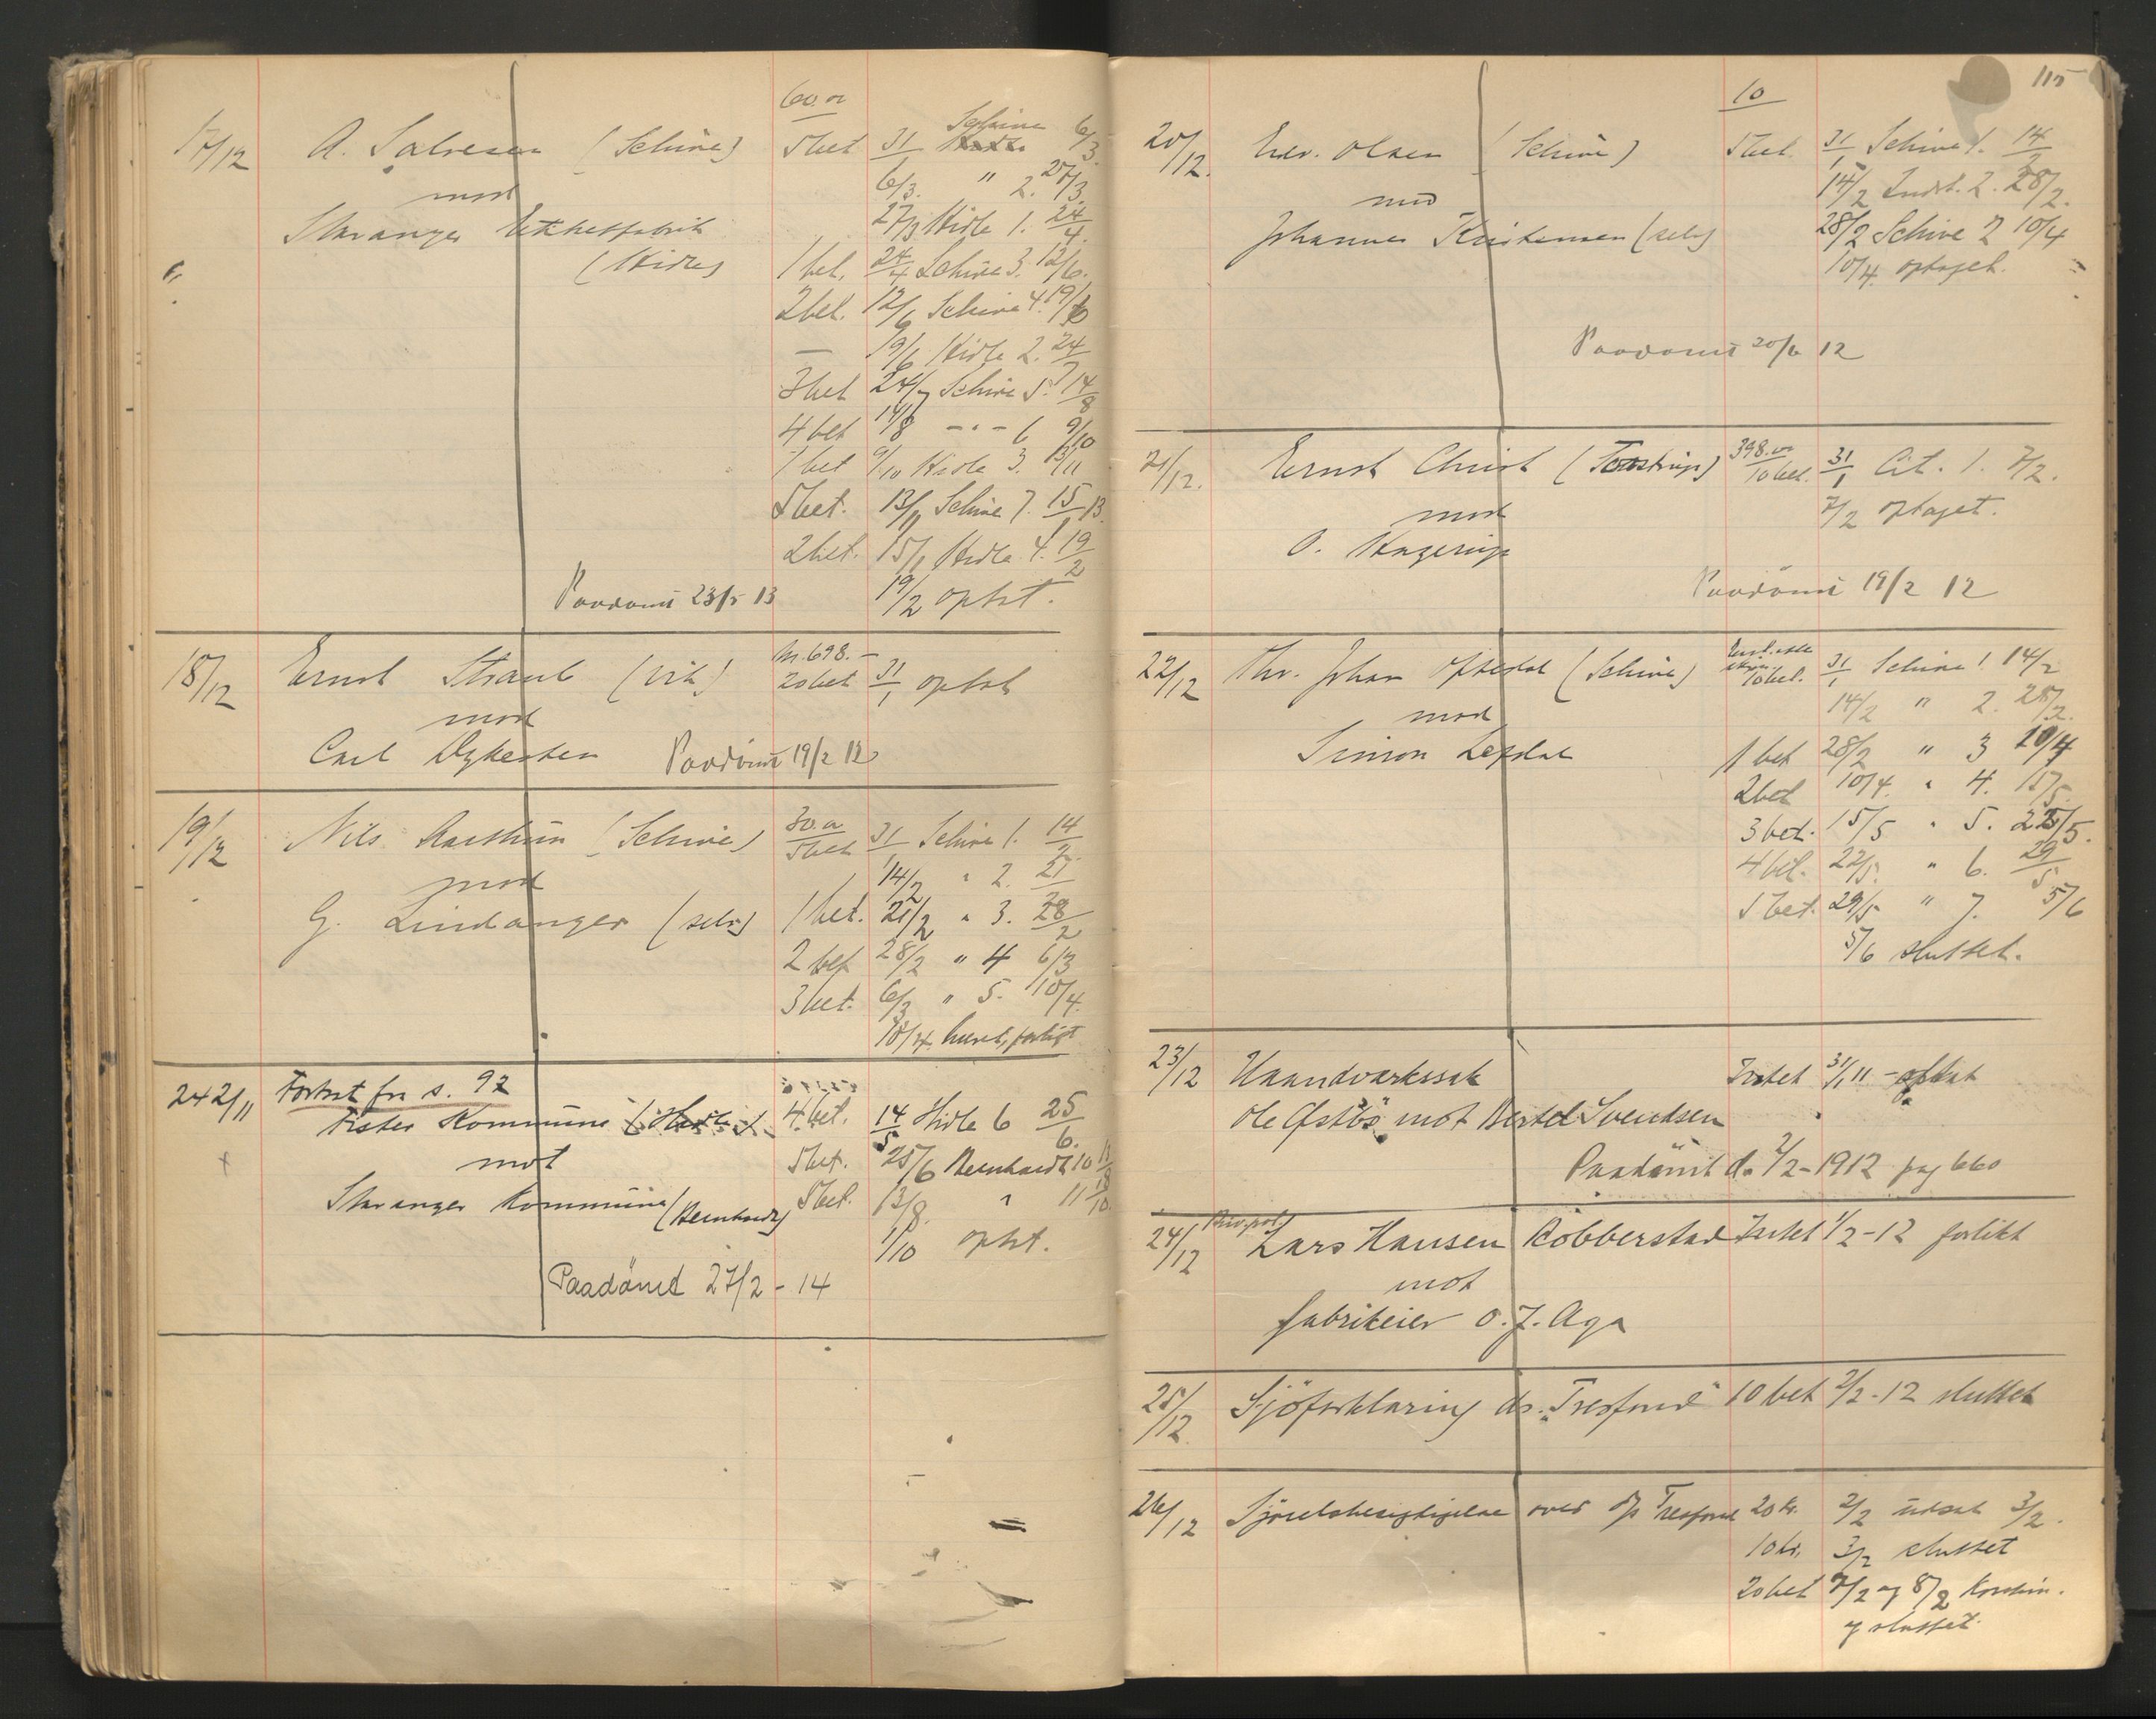 17/12 A. Salvesen (Schive) 5bet 31/1 Schive 6/3
60.00
mod 6/3 " 2. 27/3
Stavanger (Hidle) 27/3 Hidle 1. 24/4
1 bet. 24/4 Schive 3. 12/6.
2bet. 12/6 Schive 4. 19/6
— 19/6 Hidle 2. 24/7
3bet 24/7 Schive 5. 14/8
4 bet 14/8 -"- 6 9/10
1 bet 9/10 Hidle 3. 13/11
5bet. 13/11 Schive 7. 15/1 13.
2bet. 15/1 Hidle 4. 19/2
Paadömt 23/5 13 19/2 optat.
18/12 Ernst Straub (Vik) M. 698.— 20bet 31/1 optat
mod
Carl Dykesten Paadömt 19/2 12
19/12 Nils (Schive) 30.00 5bet 31/1 Schive 1. 14/2
mod 14/2 " 2. 21
G. Lindanger (selv) 1 bet. 21/2 " 3. 28/2
2 bet 28/2 " 4 6/3
3bet. 6/3 " 5. 10/4.
10/4. hævet, forligt
242/11 Fortsat fra s. 92
Kommune 4.bet. 14/5 Hidle 6 25/6.
mot 5bet. 25/6 Bernhardt 10 13/8
Stavanger Kommune (Bernhardt) 5bet. 13/8. " 11 1/10.
1/10 optat.
Paadömt 27/2 - 14
115
10
20/12. Edv. Olsen (Schive) 5bet. 31/1 Schive 1. 14/2
mod 14/2 Indst. 2. 28/2.
Johannes Kristensen (selv) 28/2 Schive 2 10/4
10/4. optaget.
Paadömt 20/6 12
21/12. Ernst Christ (Tonstrup) 398.00 10bet. 31/1 Cit. 1. 7/2.
mod 7/2 optaget.
O. Hagerup
Paadömt 19/2 12
22/12 Thv. Johan Oftedal (Schive) 10bet. 31/1 Schive 1. 14/2
mod 14/2 " 2. 28/2.
Simon 1 bet 28/2 " 3 10/4
2bet 10/4. " 4. 15/5.
3bet. 15/5 " 5. 22/5.
4 bet. 22/5. " 6. 29/5.
5 bet. 29/5 " 7. 5/6
5/6 sluttet.
23/12 Haandverkssak Intet 31/1 11 - optat
Ole Östbö mot Bertel Svendsen
Paadömt d. 2/2-1912 pag 660
24/12 Priv.pol. Lars Hansen Robberstad Intet 1/2-12 forlikt
mot
fabrikeier O. J. Aga
25/12. Sjöforklaring ds. "Tresfond" 10 bet 2/2-12 sluttet
26/12 over d/s Tresfond 20 kr. 2/2 utsat 3/2.
10 kr. 3/2 sluttet
20bet 7/2 og 8/2
og sluttet.